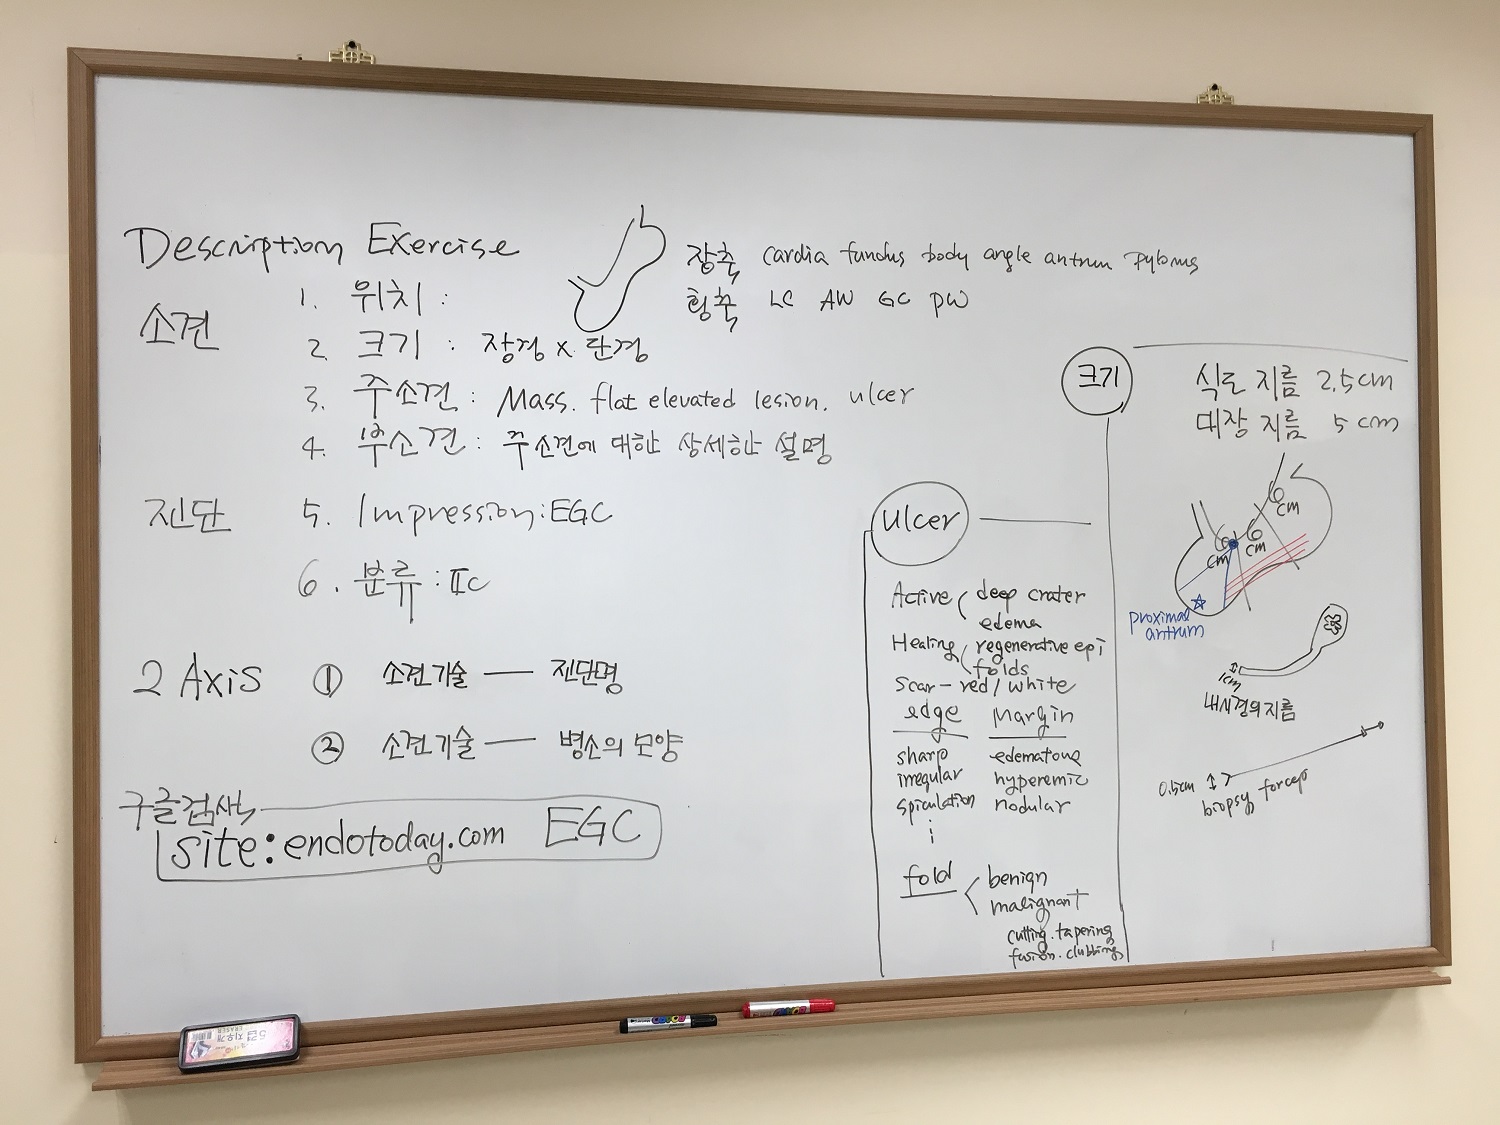 Description Exercise
소견
1. 위치 :
장축 cardia fundus body angle antrum pylorus
횡축 LC AW GC PW
2. 크기 : 장경 x 단경
3. 주소견 : Mass. flat elevated lesion. ulcer
4. 부소견 : 주소견에 대한 상세한 설명
진단
5. Impression : EGC
6. 분류 : IIc
2 Axis
① 소견기술 — 진단명
② 소견기술 — 병소의 모양
구글검색
site:endotoday.com EGC
ulcer
Active
deep crater
edema
Healing
regenerative epi
folds
Scar - red/white
edge Margin
sharp edematous
irregular hyperemic
spiculation nodular
fold
benign
malignant
cutting. tapering
fusion. clubbing
크기
식도 지름 2.5cm
대장 지름 5cm
6
cm
6
cm
6
cm
proximal
antrum
1cm
내시경의 지름
0.5cm
biopsy forcep
5점 지우개
ERASER